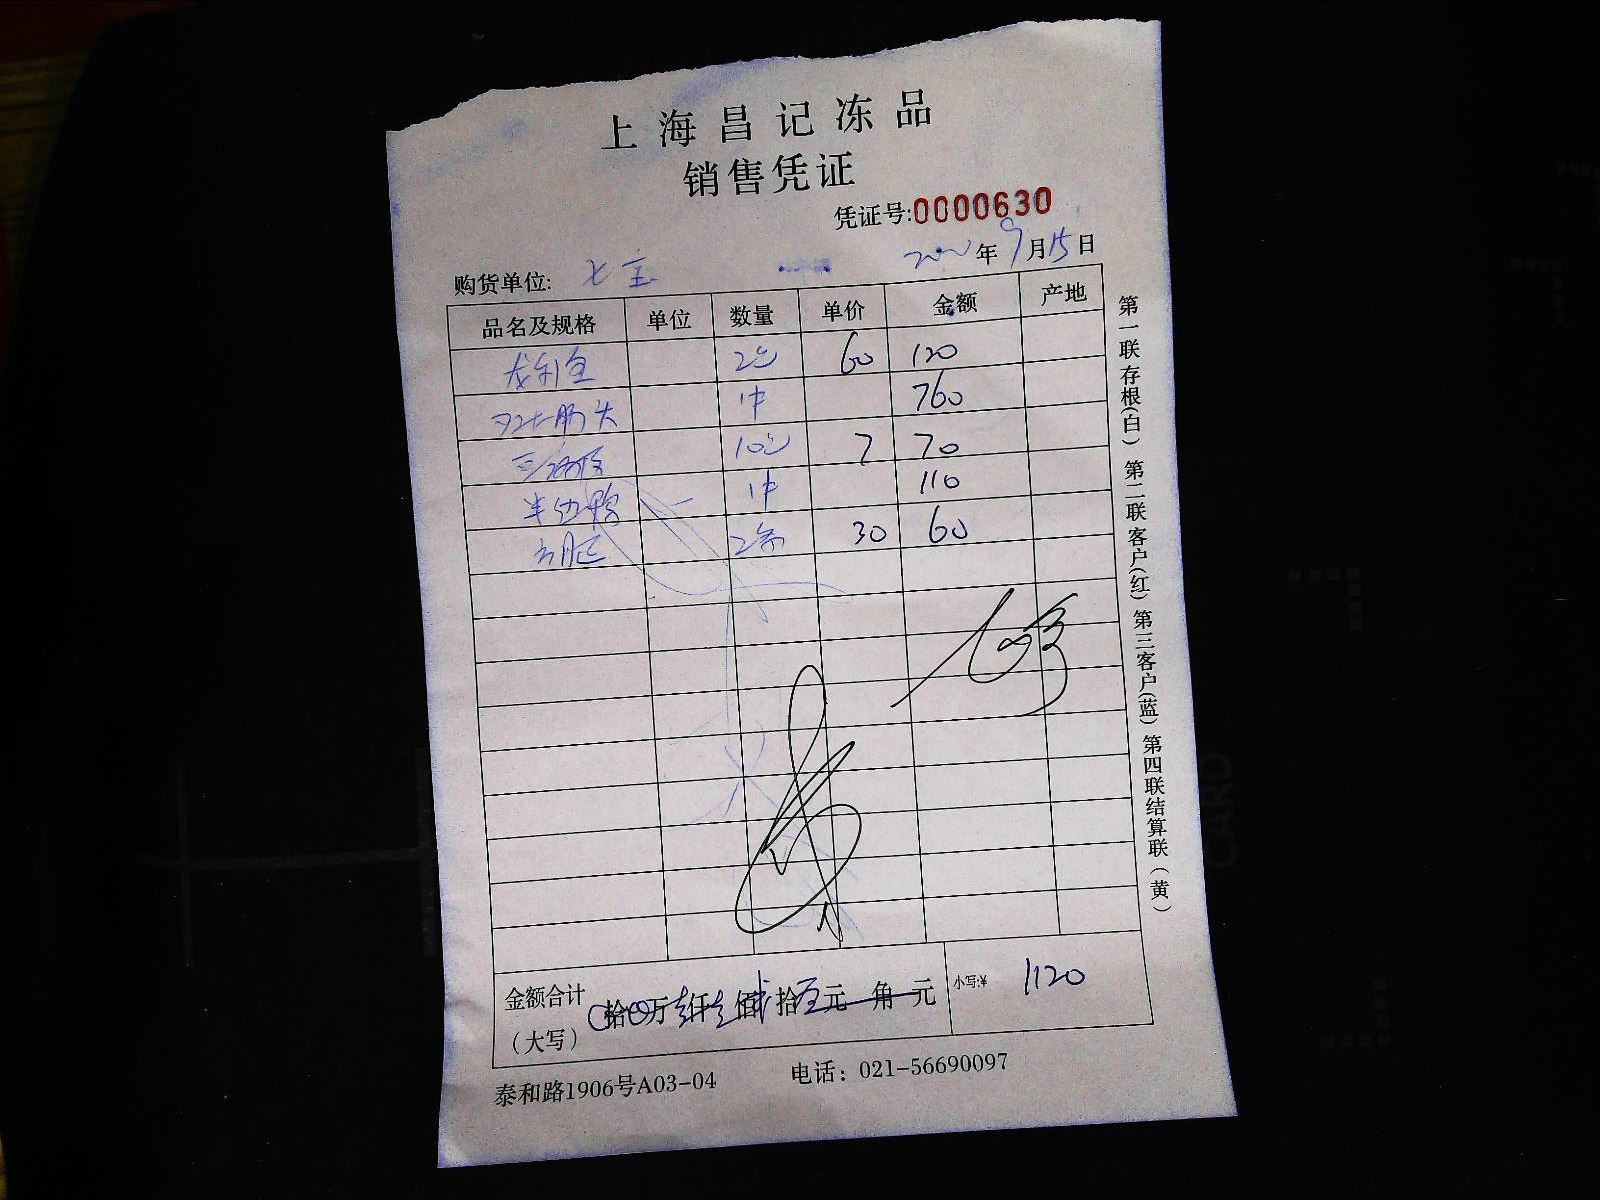 上海昌记冻品
销售凭证
凭证号:0000630
购货单位: 七宝 年9月15日
品名及规格 单位 数量 单价 金额 产地
龙利鱼 2包 60 120
1件 760
10包 7 70
半边 1件 110
2条 30 60
金额合计（大写） 拾 万 仟 佰 拾 元 角 元 小写:¥ 1120
泰和路1906号A03-04 电话：021-56690097
第一联存根(白) 第二联客户(红) 第三客户(蓝) 第四联结算联(黄)